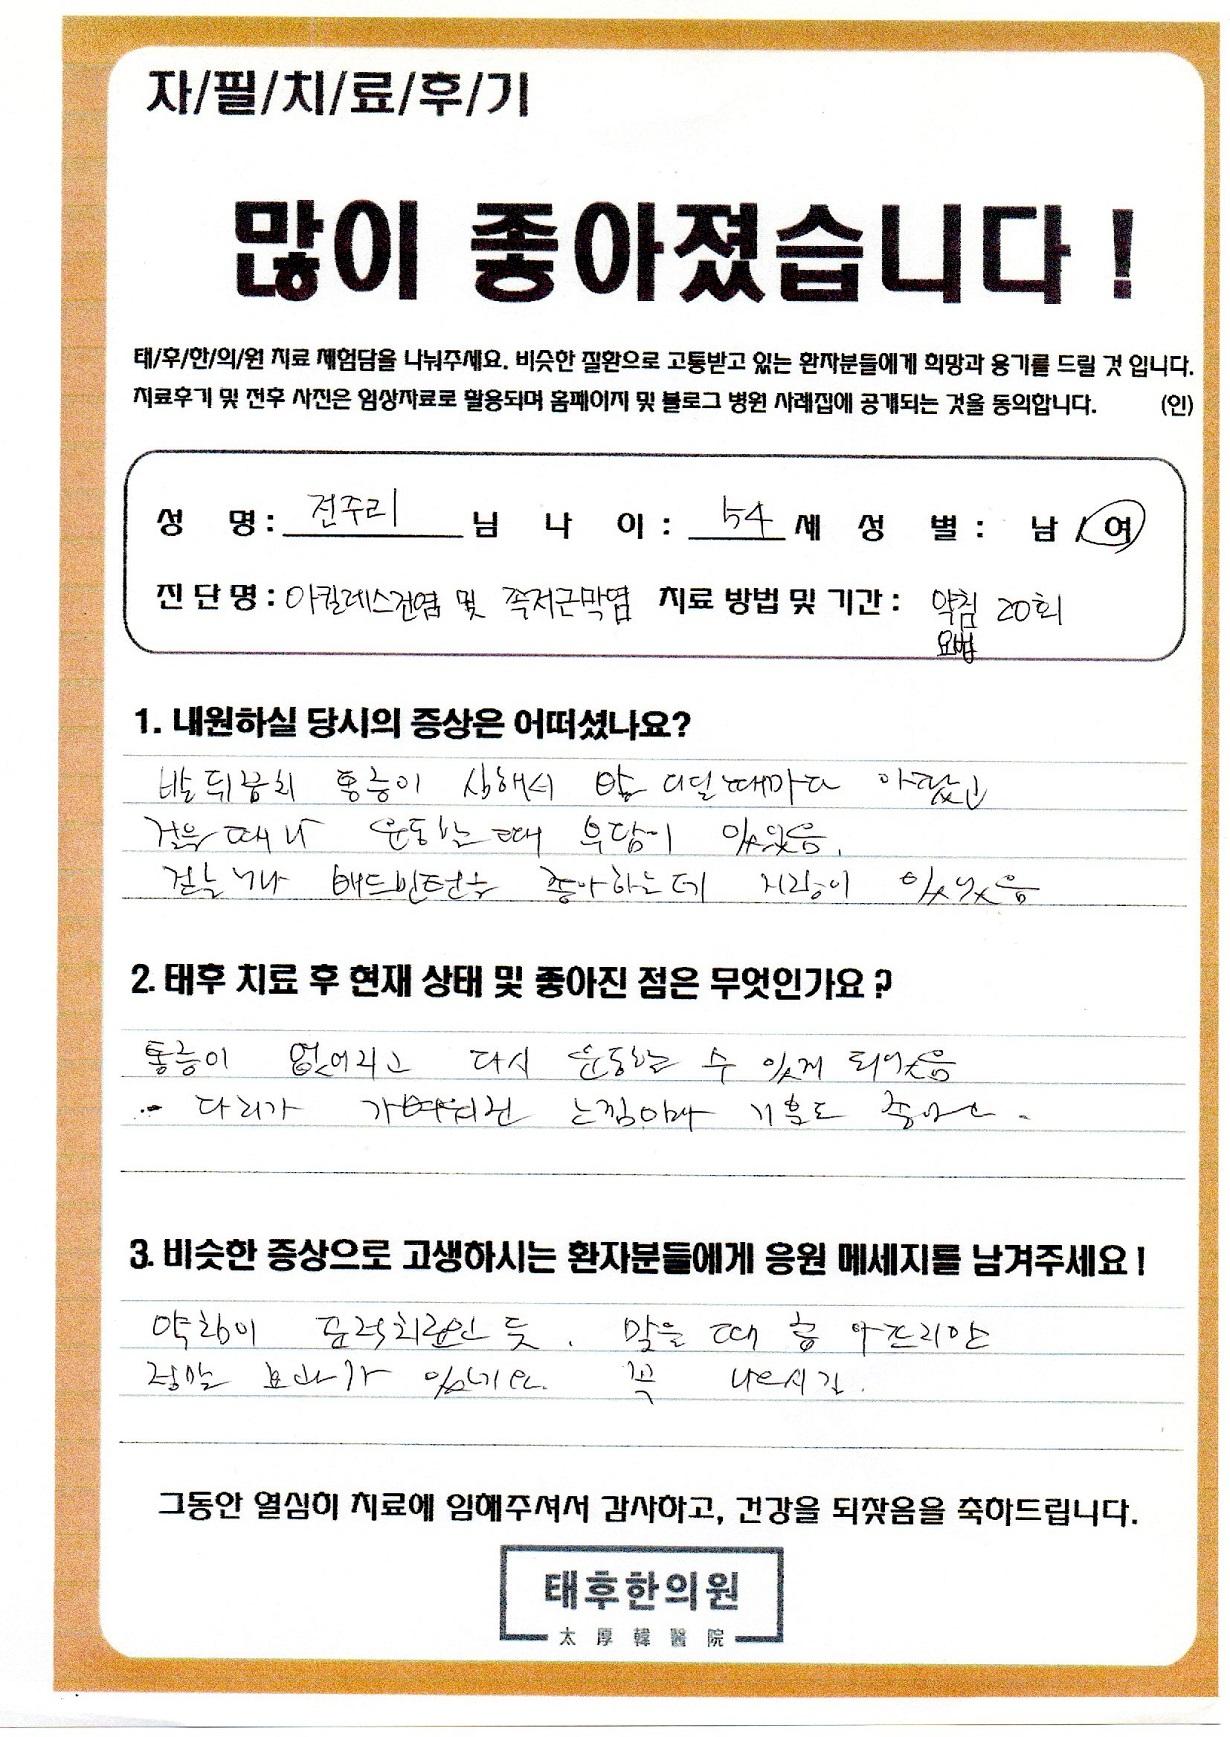 자/필/치/료/후/기
많이 좋아졌습니다 !
태/후/한/의/원 치료 체험담을 나눠주세요. 비슷한 질환으로 고통받고 있는 환자분들에게 희망과 용기를 드릴 것 입니다.
치료후기 및 전후 사진은 임상자료로 활용되며 홈페이지 및 블로그 병원 사례집에 공개되는 것을 동의합니다. (인)
성 명 : 전주리 님 나 이 : 54 세 성 별 : 남 / 여
진 단 명 : 아킬레스건염 및 족저근막염 치료 방법 및 기간 : 약침 20회
요법
1. 내원하실 당시의 증상은 어떠셨나요?
발뒤꿈치 통증이 심해서 발 디딜때마다 아팠고
걸을때나 운동할때 부담이 있었음.
걷는거나 배드민턴을 좋아하는데 지장이 있었음
2. 태후 치료 후 현재 상태 및 좋아진 점은 무엇인가요 ?
통증이 없어지고 다시 운동할 수 있게 되었음
다리가 가벼워진 느낌이라 기분도 좋아요.
3. 비슷한 증상으로 고생하시는 환자분들에게 응원 메세지를 남겨주세요 !
약침이 표적치료인 듯. 맞을 때 좀 아프지만
정말 효과가 있네요. 꼭 나으시길.
그동안 열심히 치료에 임해주셔서 감사하고, 건강을 되찾음을 축하드립니다.
태후한의원
太厚韓醫院